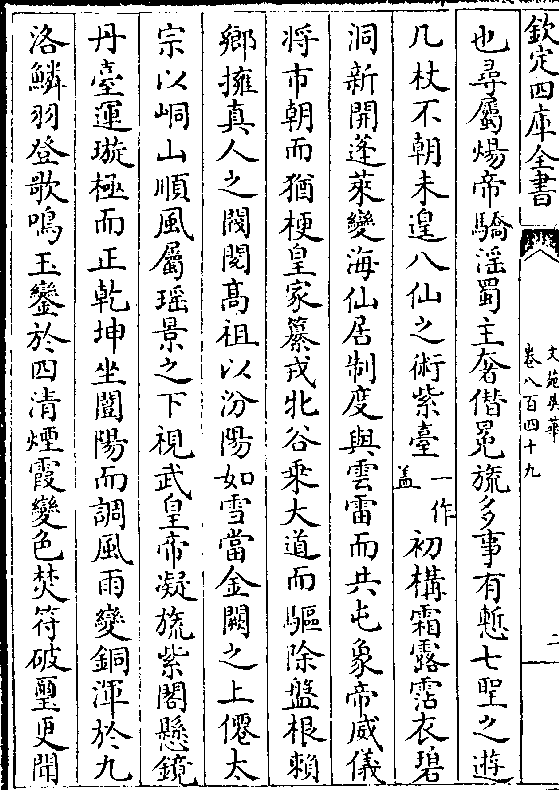 欽定四庫全書
文苑英華
卷八百四十九
二
也尋屬煬帝驕淫蜀主奢僭冕旒多事有慙七聖之遊
几杖不朝未遑八仙之術紫臺一作蓋初構霜露霑衣碧
洞新開蓬萊變海仙居制度與雲雷而共屯象帝威儀
將市朝而猶梗皇家纂戎牝谷乘大道而驅除盤根賴
鄉擁真人之閥閱髙祖以汾陽如雪當金闕之上僊太
宗以峒山順風屬瑶景之下視武皇帝凝旒紫閣懸鏡
丹臺運璇極而正乾坤坐闓陽而調風雨變銅渾於九
洛鱗羽登歌鳴玉鑾於四清煙霞變色焚符破璽更聞